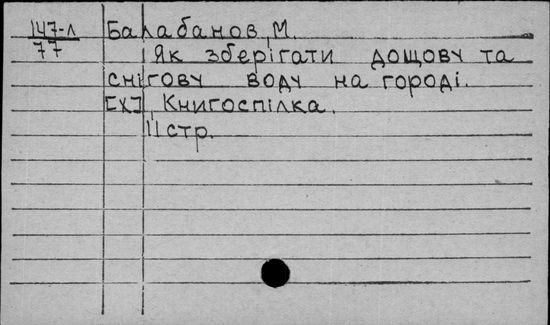 147-л
77
Балабанов, М.
Як зберігати дощову та
снігову воду на городі.
[Х], Книгоспілка.
11 стр.